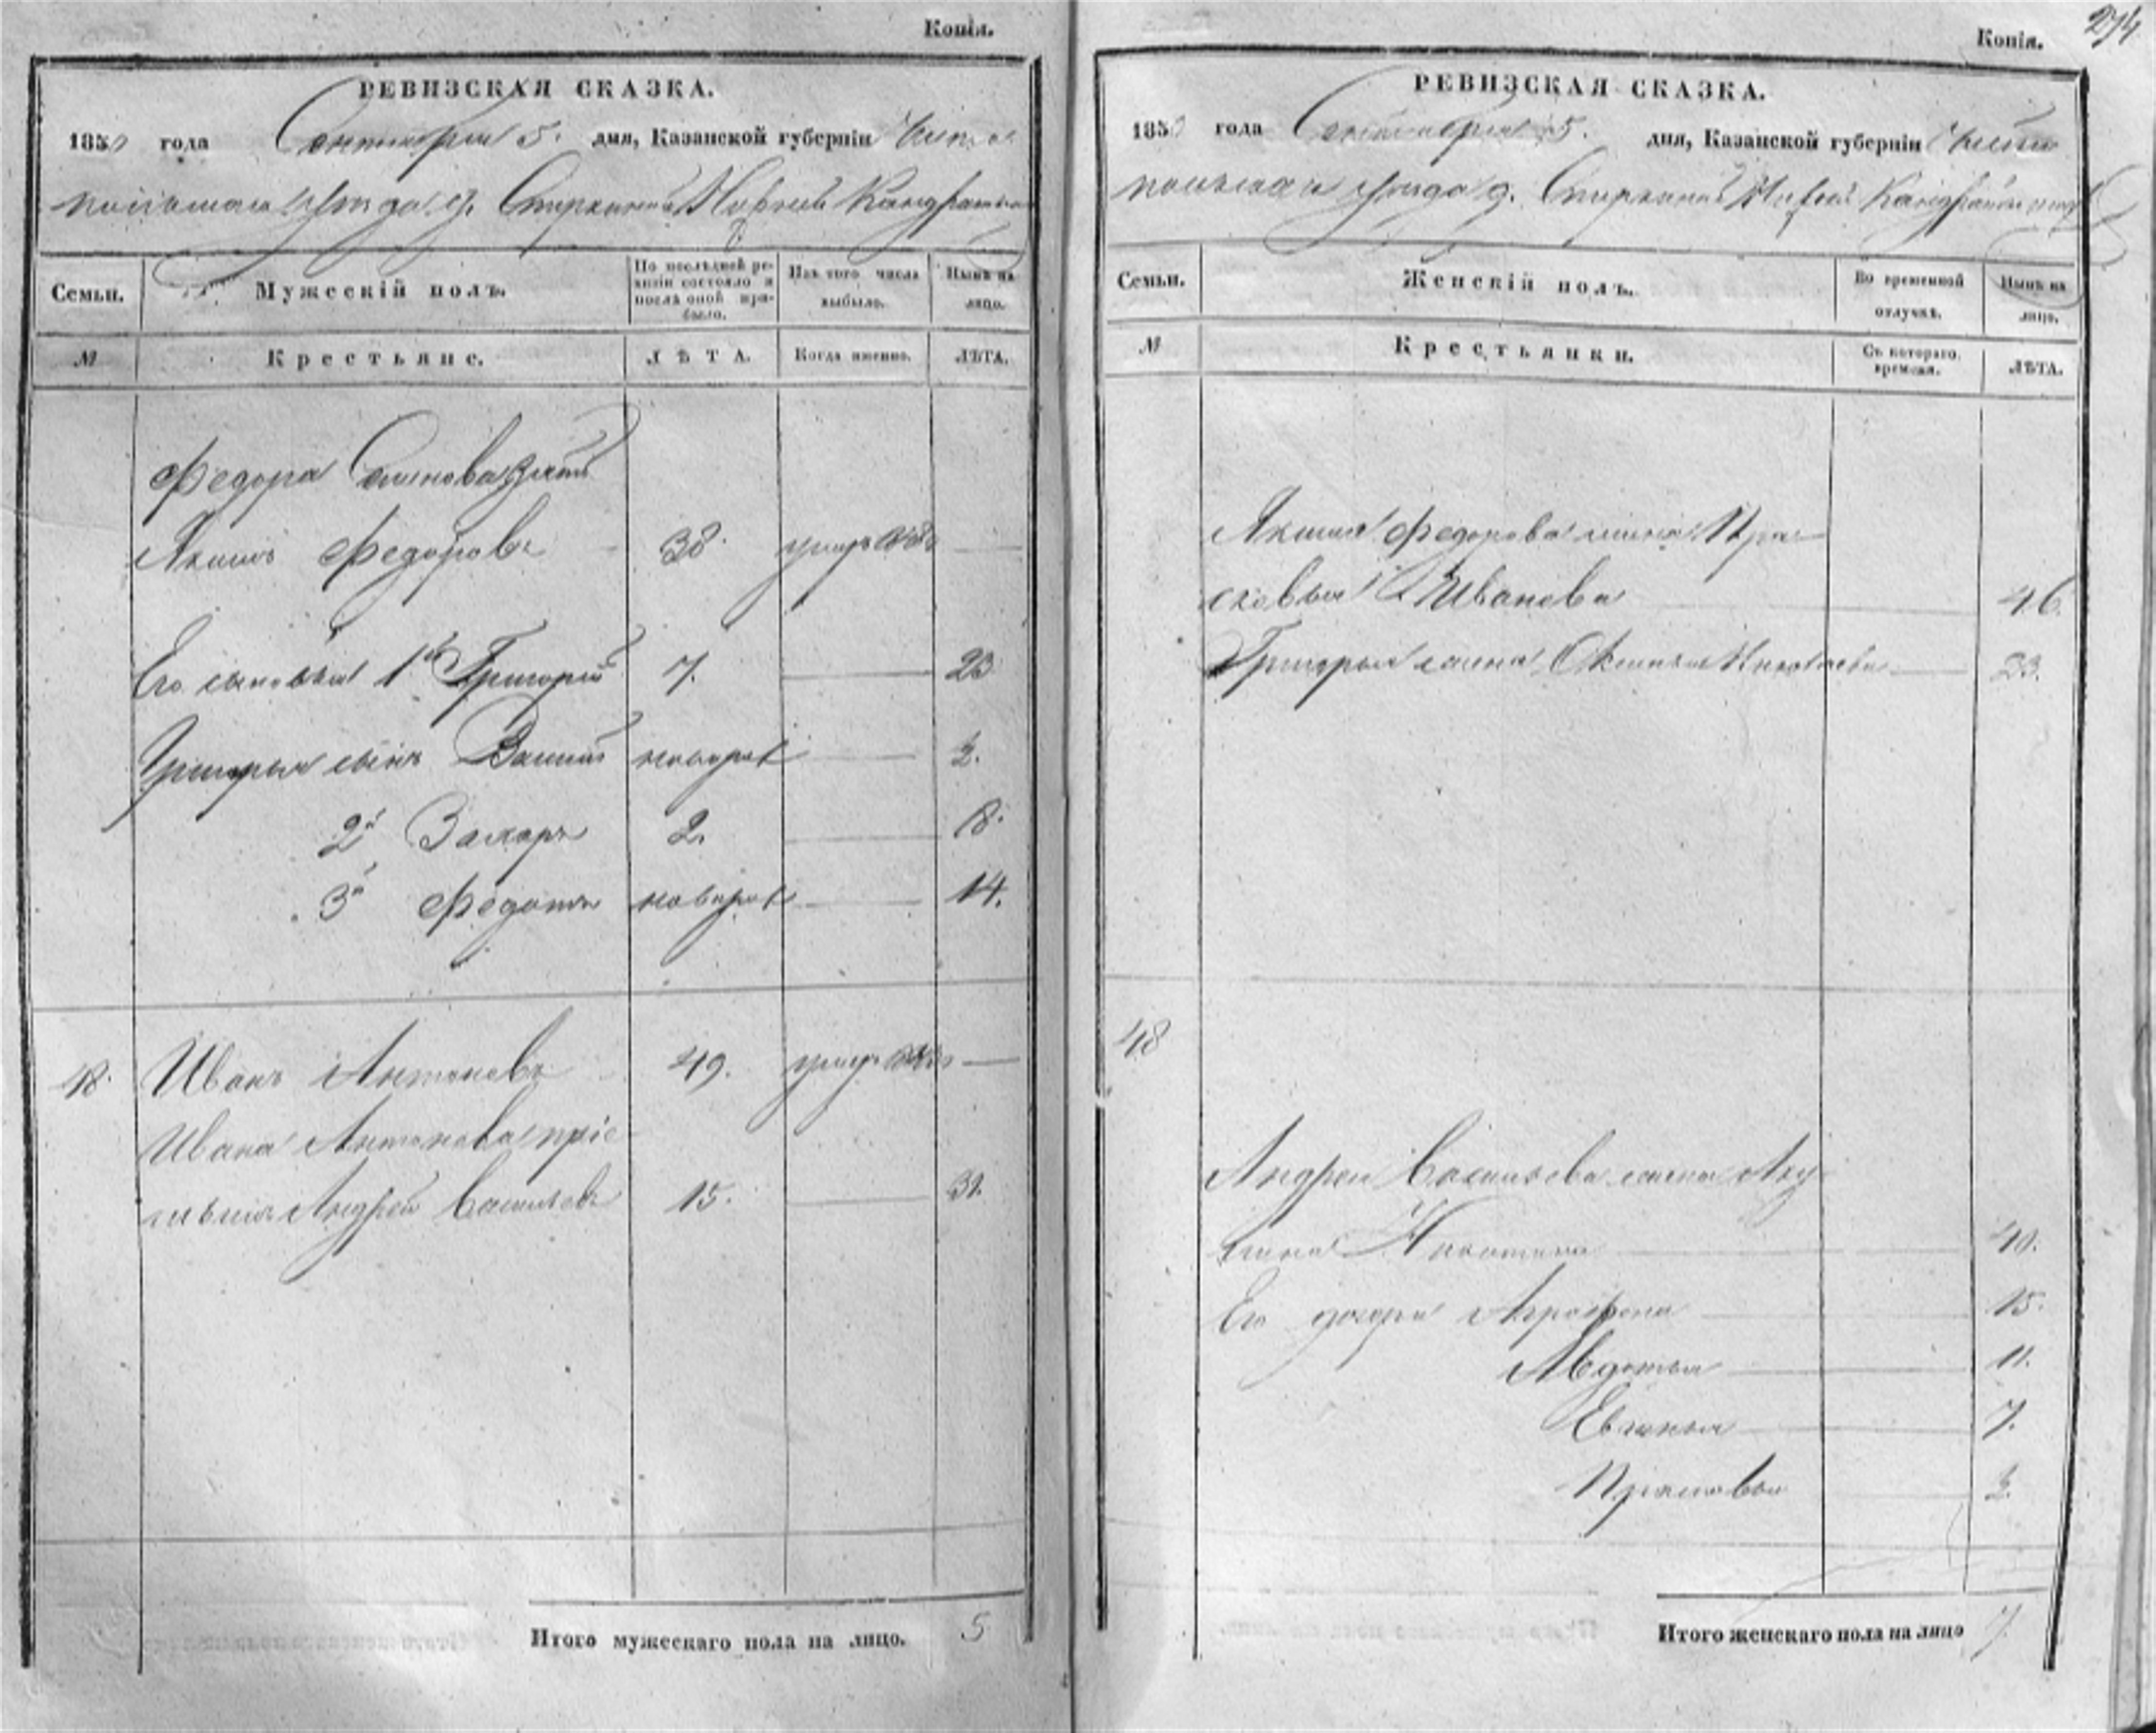 Копія.
РЕВИЗСКАЯ СКАЗКА.
1850 года Сентября 5. дня, Казанской губерніи Чисто
польскаго уѣзда д.
Семьи.
Мужескій полъ.
По послѣдней ре-
визіи состояло и
послѣ оной при-
было.
Изъ того числа
выбыло.
Нынѣ на
лицо.
№
Крестьяне.
ЛѢТА.
Когда именно.
ЛѢТА.
Федора Семенова зять
Якимъ Федоровъ 38. умеръ —
Его сыновья 1й Григорій 7. — 23
Григорья сынъ новорож — 2.
2й Захаръ 2. — 18.
3й Федотъ новорож — 14.
48. Иванъ Антоновъ 49. умеръ —
Ивана Антонова пріе
мышъ Андрей Васильевъ 15. — 31.
Итого мужескаго пола на лицо. 5
274
Копія.
РЕВИЗСКАЯ СКАЗКА.
1850 года Сентября 5. дня, Казанской губерніи Чисто
польскаго уѣзда д.
Семьи.
Женскій полъ.
Во временной
отлучкѣ.
Нынѣ на
лицо.
№
Крестьянки.
Съ котораго
времени.
ЛѢТА.
Якима Федорова жена Пра
сковья Иванова — 46.
Григорья жена Николаева — 23.
48
Андрея Васильева жена Аку
лина Никитина — 40.
Его дочери Аграфена — 15.
Авдотья — 11.
Евгенья — 7.
Прасковья — 2.
Итого женскаго пола на лицо 7.